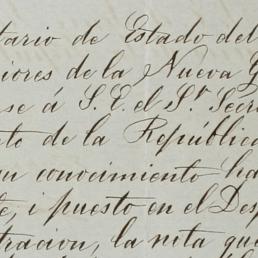 tario de Estado del
iores de la Nueva G
se á S. E. el Sr. Secre
to de la República
un conocimiento ha
te, i puesto en el Desp
tracion, la nota que